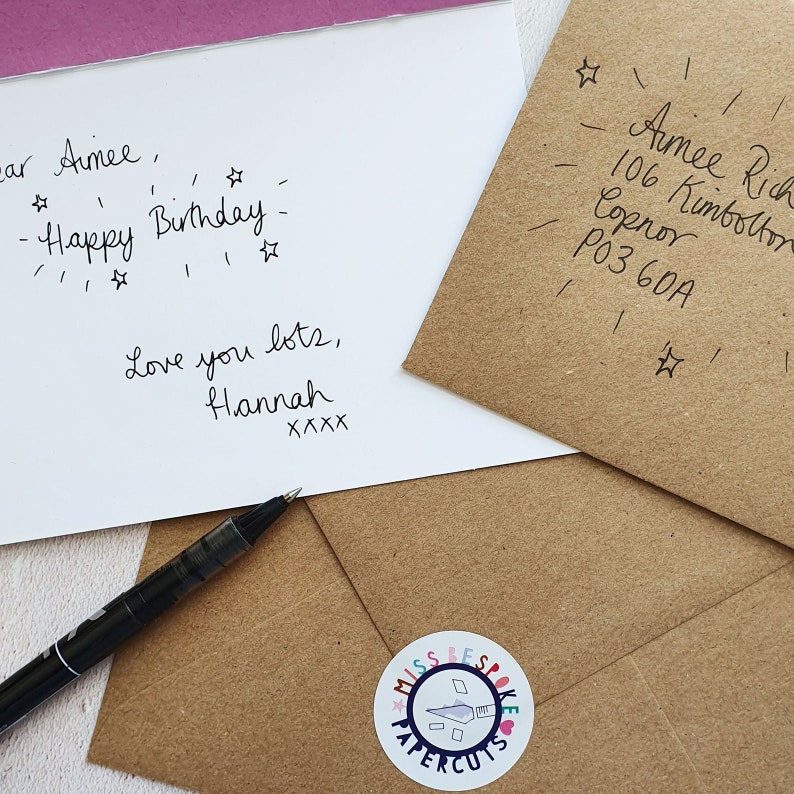 ear Aimee,
- Happy Birthday -
Love you lots,
Hannah
xxxx
Aimee Rich
106 Kimbolton
Copnor
PO3 6DA
MISS BESPOKE
PAPERCUTS